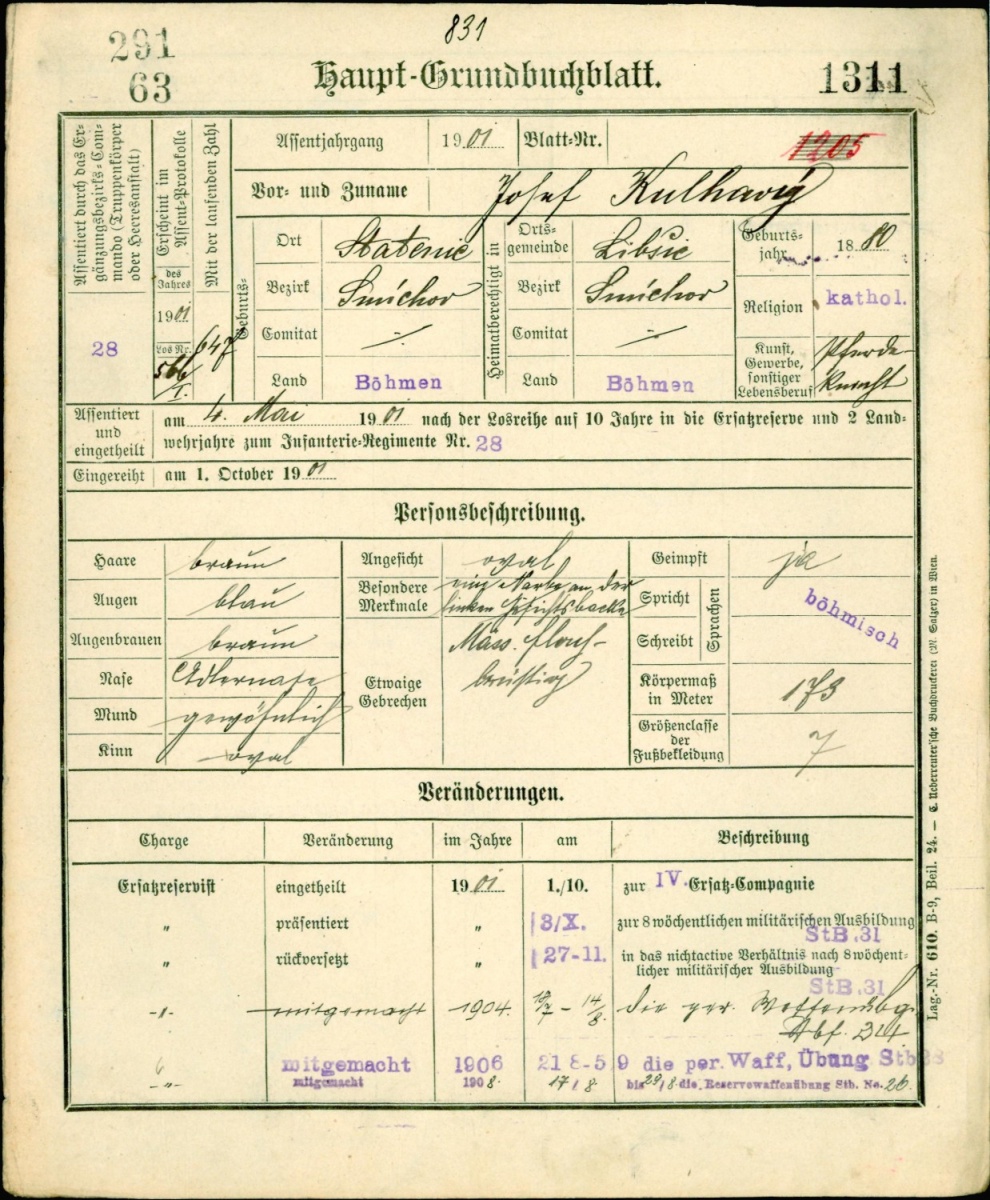 291
63
831
Haupt-Grundbuchblatt.
1311
Assentiert durch das Er-
gänzungsbezirks-Com-
mando (Truppenkörper
oder Heeresanstalt)
28
Erscheint im
Assent-Protokolle
des
Jahres
1901
Los Nr.
566/I.
Mit der laufenden Zahl
647
Assentjahrgang 1901 Blatt-Nr. 1205
Vor- und Zuname Josef Kulhavý
Geburts-
Ort Statenic
Bezirk Smíchov
Comitat
Land Böhmen
Heimatberechtigt in
Orts-
gemeinde Libšic
Bezirk Smíchov
Comitat
Land Böhmen
Geburts-
jahr 1880
Religion kathol.
Kunst,
Gewerbe,
sonstiger
Lebensberuf
Pferde-
knecht
Assentiert
und
eingetheilt
am 4. Mai 1901 nach der Losreihe auf 10 Jahre in die Ersatzreserve und 2 Land-
wehrjahre zum Infanterie-Regimente Nr. 28
Eingereiht am 1. October 1901
Personsbeschreibung.
Haare braun
Augen blau
Augenbrauen braun
Nase Adlernase
Mund gewöhnlich
Kinn oval
Angesicht oval
Besondere
Merkmale
eine Narbe an der
linken Gesichtsbacke
Etwaige
Gebrechen
Mäss. flach-
brüstig
Geimpft ja
Spricht
Schreibt
Sprachen
böhmisch
Körpermaß
in Meter 173
Größenclasse
der
Fußbekleidung 7
Veränderungen.
Charge Veränderung im Jahre am Beschreibung
Ersatzreservist eingetheilt 1901 1./10. zur IV. Ersatz-Compagnie
" präsentiert " 3/X. zur 8 wöchentlichen militärischen Ausbildung
StB.31
" rückversetzt " 27-11. in das nichtactive Verhältnis nach 8 wöchent-
licher militärischer Ausbildung
StB.31
-"- mitgemacht 1904. - 14/8. die per. Waffenübg.
mitgemacht 1906 21 8-5 9 die per. Waff, Übung Stb
-"- mitgemacht 1908. 17/8 bis 29/8 die Reservewaffenübung Stb. No. 26.
Lag.-Nr. 610. B-9, Beil. 24. — C. Ueberreuter'sche Buchdruckerei (M. Salzer) in Wien.